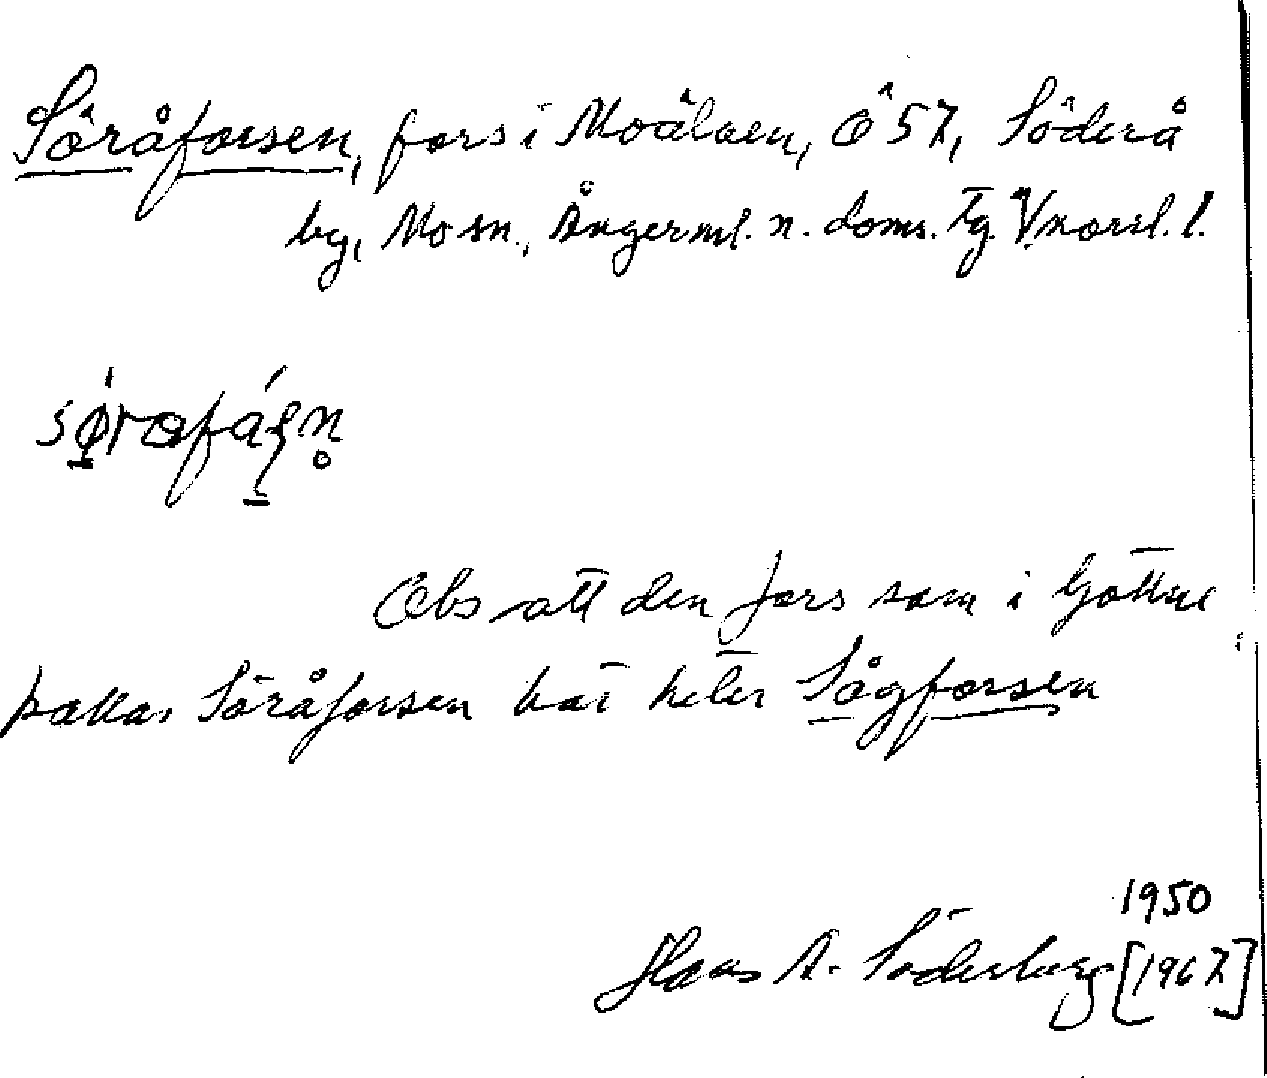 Söråforsen, fors i Moälven, Ö 57, Söderå
by, Mo sn., Ångerml. n. doms. Tg Vnorrl. l.
Obs att den fors som i Gottne
kallas Söråforsen här heter Sågforsen
1950
Hans A. Söderberg [1967]